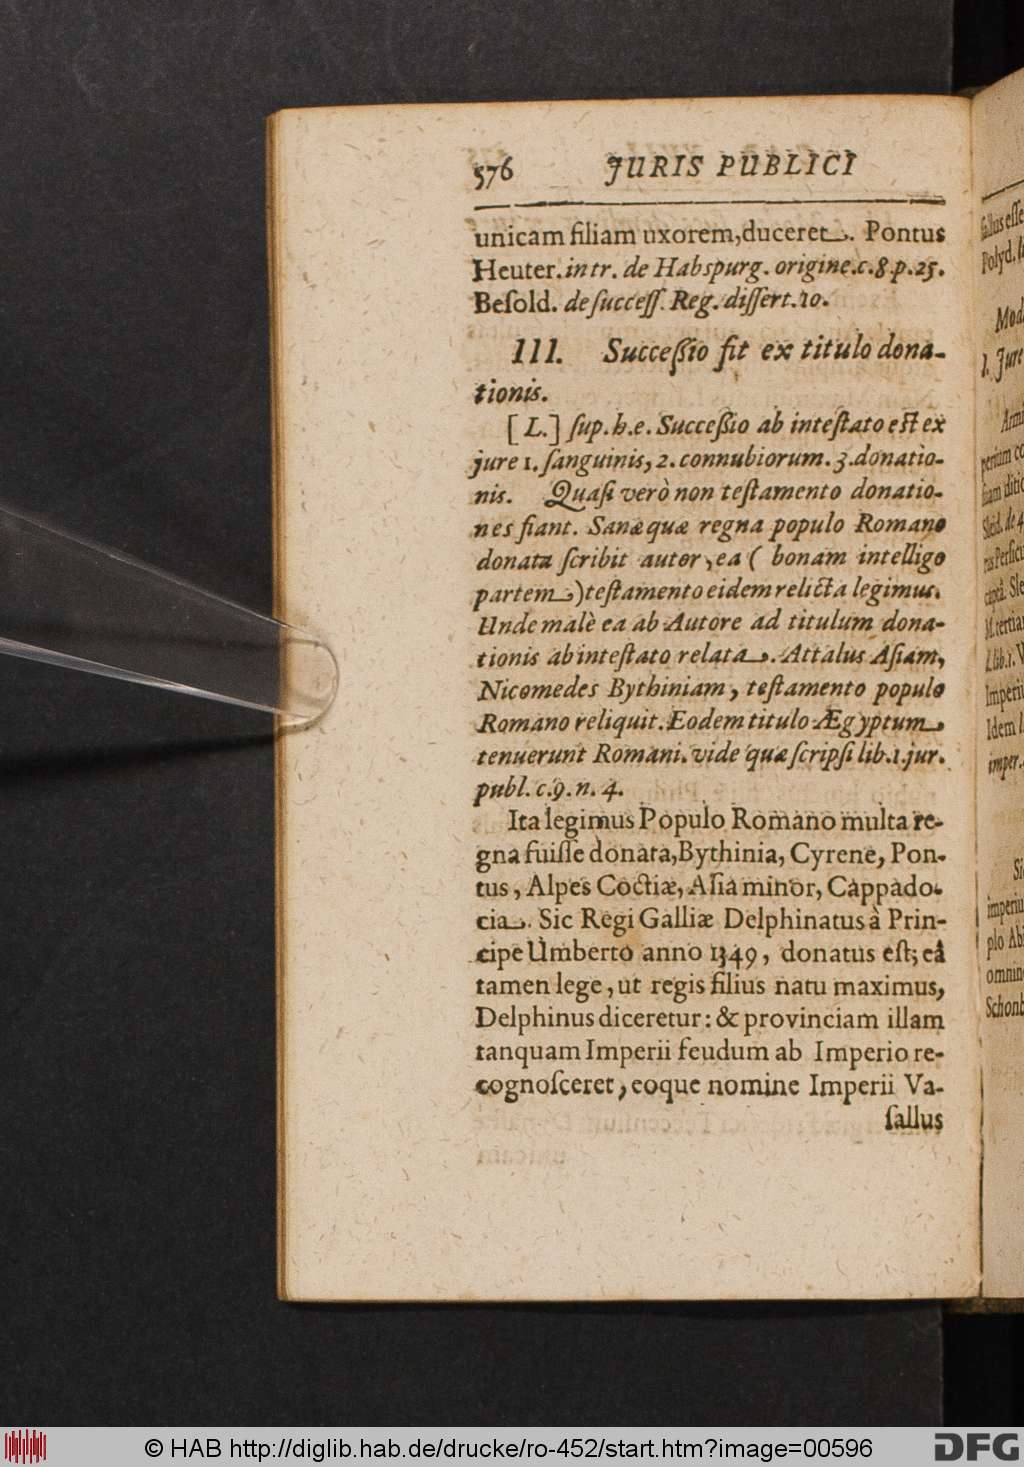 576 JURIS PUBLICI
unicam filiam uxorem, duceret. Pontus
Heuter. in tr. de Habspurg. origine. c. 8. p. 25.
Beſold. de ſucceſſ. Reg. diſſert. 10.
III. Succeſſio fit ex titulo dona-
tionis.
[L.] ſup. h. e. Succeſſio ab inteſtato eſt ex
jure 1. ſanguinis, 2. connubiorum. 3. donatio-
nis. Quaſi verò non teſtamento donatio-
nes fiant. Sanæ quæ regna populo Romano
donata ſcribit autor, ea ( bonam intelligo
partem) teſtamento eidem relicta legimus.
Unde malè ea ab Autore ad titulum dona-
tionis ab inteſtato relata. Attalus Aſiam,
Nicomedes Bythiniam, teſtamento populo
Romano reliquit. Eodem titulo Ægyptum
tenuerunt Romani. vide quæ ſcripſi lib. 1. jur.
publ. c. 9. n. 4.
Ita legimus Populo Romano multa re-
gna fuiſſe donata, Bythinia, Cyrene, Pon-
tus, Alpes Coctiæ, Aſia minor, Cappado-
cia. Sic Regi Galliæ Delphinatus à Prin-
cipe Umberto anno 1349, donatus eſt; eâ
tamen lege, ut regis filius natu maximus,
Delphinus diceretur: & provinciam illam
tanquam Imperii feudum ab Imperio re-
cognoſceret, eoque nomine Imperii Va-
ſallus
© HAB http://diglib.hab.de/drucke/ro-452/start.htm?image=00596
DFG